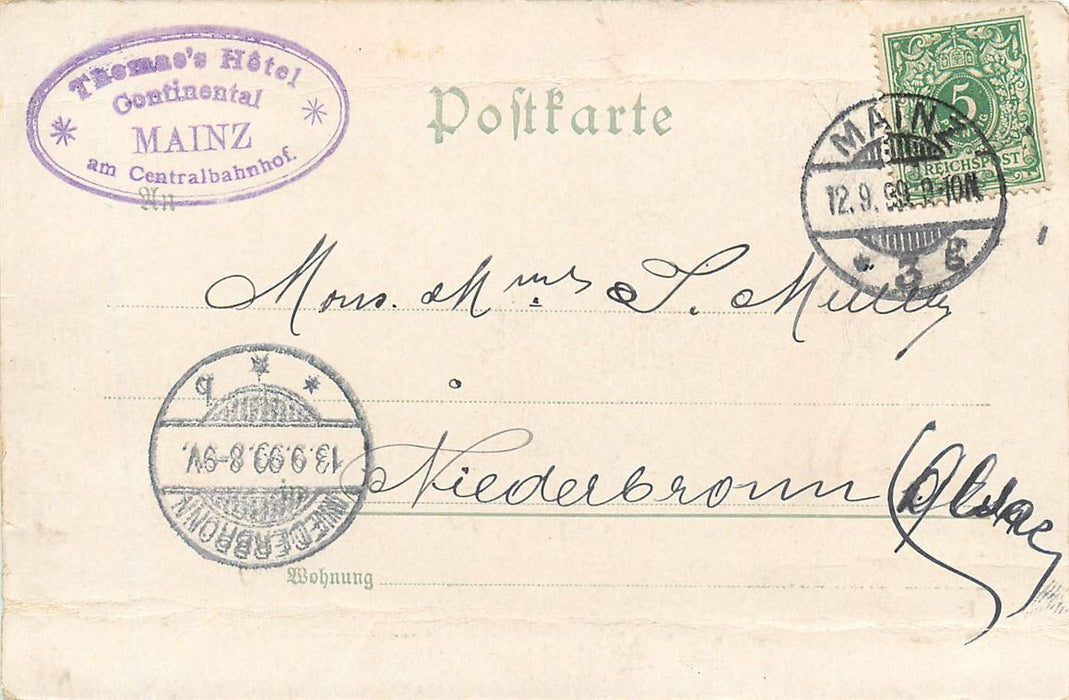 Thomas's Hôtel
Continental
MAINZ
am Centralbahnhof.
Postkarte
5
REICHSPOST
MAINZ
12.9.99. 9-10N.
* 3 g
An
Mons. & Mmes J. Muller
* * b
13.9.99. 8-9V.
NIEDERBRONN
in
Niederbronn (Alsace)
Wohnung